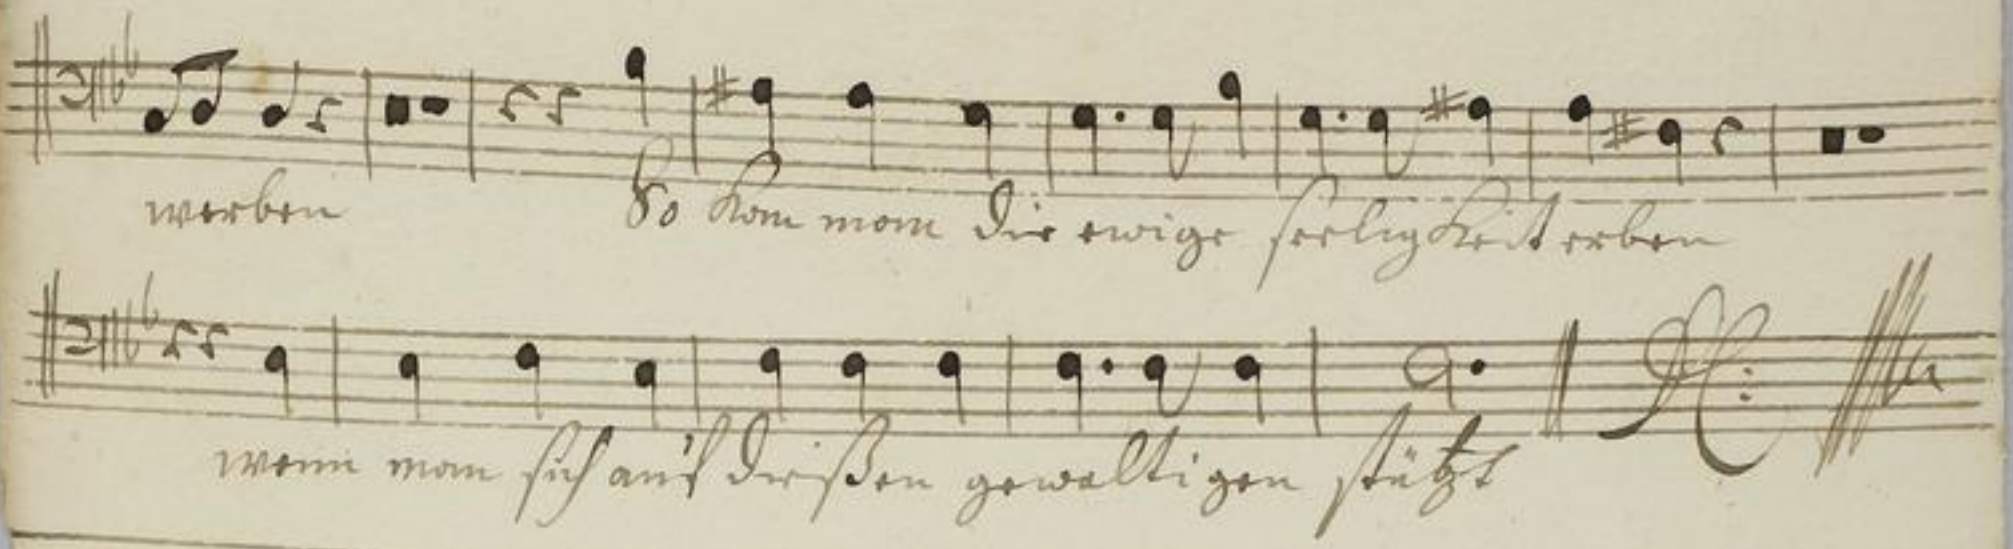 werben So kan man die ewige seeligkeit erben
wenn man sich auf dießen gewaltigen stützt